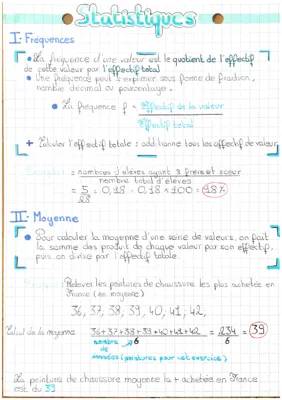 Statistiques
I: Fréquences
• La fréquence d'une valeur est le quotient de l'effectif
de cette valeur par l'effectif total
• Une fréquence peut s'exprimer sous forme de fraction,
nombre décimal ou pourcentage.
• La fréquence f = effectif de la valeur
effectif total
+ Calculer l'effectif totale : additionne tous les effectif de valeur
Exemple : = nombres d'élèves ayant 3 frères et soeur
nombre total d'élèves
= 5 = 0,18 - 0,18 × 100 = 18%
28
II: Moyenne
• Pour calculer la moyenne d'une série de valeurs, on fait
la somme des produit de chaque valeur par son effectif,
puis on divise par l'effectif totale.
Relever les pointures de chaussure les plus achetée en
France (en moyenne)
36, 37, 38, 39, 40, 41, 42,
Calcul de la moyenne 36+37+38+39+40+41+42 = 234 = 39
nombre de 6 6
données (pointures pour cet exercice)
La pointure de chaussure moyenne la + achetée en France
est du 39